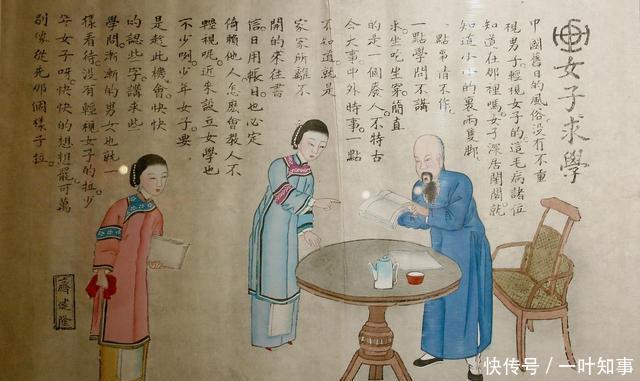 女子求學
中國舊日的風俗。沒有不重
視男子。輕視女子的。這毛病諸位
知道在那裡嗎。女子深居閨閣。就
知道小小的裹兩隻腳。
一點事情不作。
一點學問不講
求。坐吃坐穿。簡直
的是一個廢人。不特古
今大事。中外時事。一點
不知道。就是
家家所離不
開的來往書
信。日用賬目。也必定
倚賴他人。怎麼會教人不
輕視呢。近來設立女學也
不少咧。少年女子。要
是趁此機會。快快
的認些字。講求些
學問。漸漸的男女也就一
樣看待。沒有輕視女子的拉。少
年女子呀。快快的想想罷。可萬
別像從先那個樣子拉。
齊健隆
快传号／一叶知事